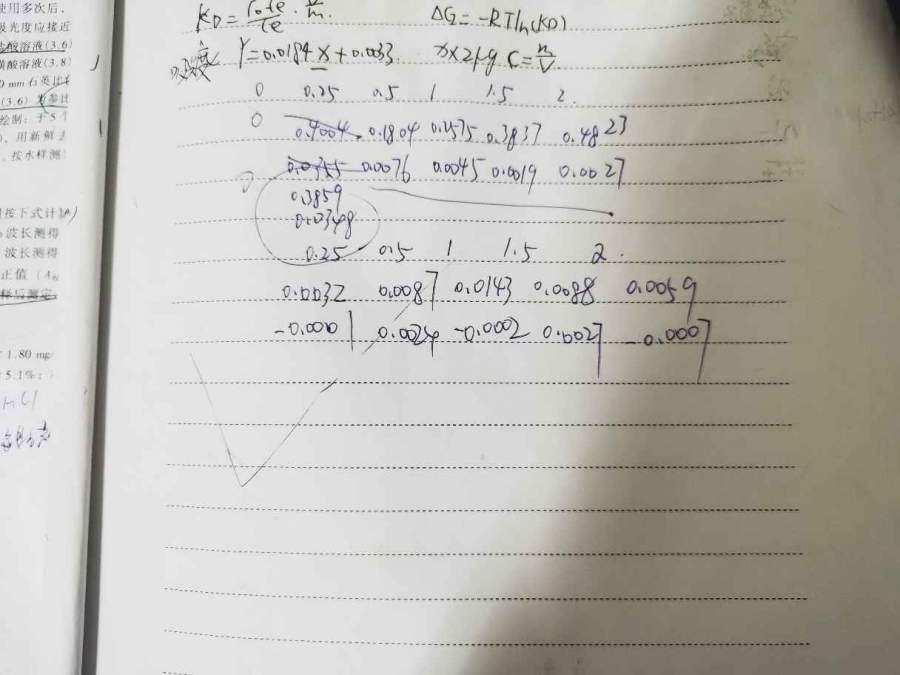 使用多次后、
吸光度应接近
盐酸溶液(3.6)
磺酸溶液(3.8)
0 mm 石英比
(3.6) 为参比
绘制: 于5个
, 用新鲜去
, 按水样测
按下式计算
波长测得
波长测得
正值 (A
样后测定
1.80 mg
5.1%;
HCl
KD = ΔG = -RTln(KD)
Y = 0.0184x + 0.0033. x×2μg C = n/V
0 0.25 0.5 1 1.5 2.
0 0.4004 0.1804 0.2575 0.3837 0.4823
0 0.0355 0.0076 0.0045 0.0019 0.0027
0.3859
0.0348
0.25 0.5 1 1.5 2.
0.0032 0.0087 0.0143 0.0088 0.0059
-0.0001 0.0024 -0.0002 0.0027 -0.0007